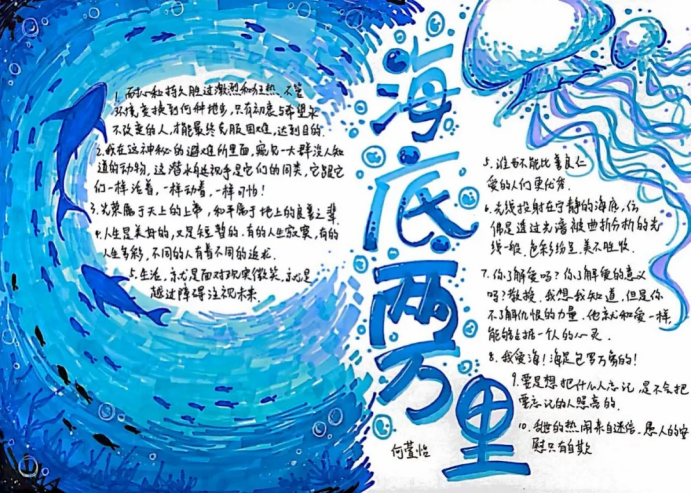 海底两万里
1. 耐心和持久胜过激烈和狂热,不管
环境变换到何种地步,只有初衷与希望永
不改变的人,才能最终克服困难,达到目的.
2. 我在这神秘的避难所里面,窥见一大群没人知
道的动物,这潜水艇似乎是它们的同类,它跟它
们一样活着,一样动着,一样可怕!
3. 光荣属于天上的上帝,和平属于地上的良善之辈.
4. 人生是美好的,又是短暂的.有的人生寂寞,有的
人生多彩,不同的人有着不同的追求.
5. 生活,就是面对现实微笑,就是
越过障碍注视未来.
5. 谁也不能比善良仁
爱的人们更优穿.
6. 光线投射在宁静的海底,仿
佛是透过去 被曲折分析的光
线一般,色彩纷呈,美不胜收.
7. 你了解爱吗?你了解爱的意义
吗?教授.我想我知道,但是你
不了解仇恨的力量.他就和爱一样,
能够占据一个人的心灵.
8. 我爱海!海是包罗万象的!
9. 要是想把什么人忘记,是不会把
要忘记的人照亮的.
10. 的热闹来自迷信,愚人的安
慰只有自欺
何莹怡